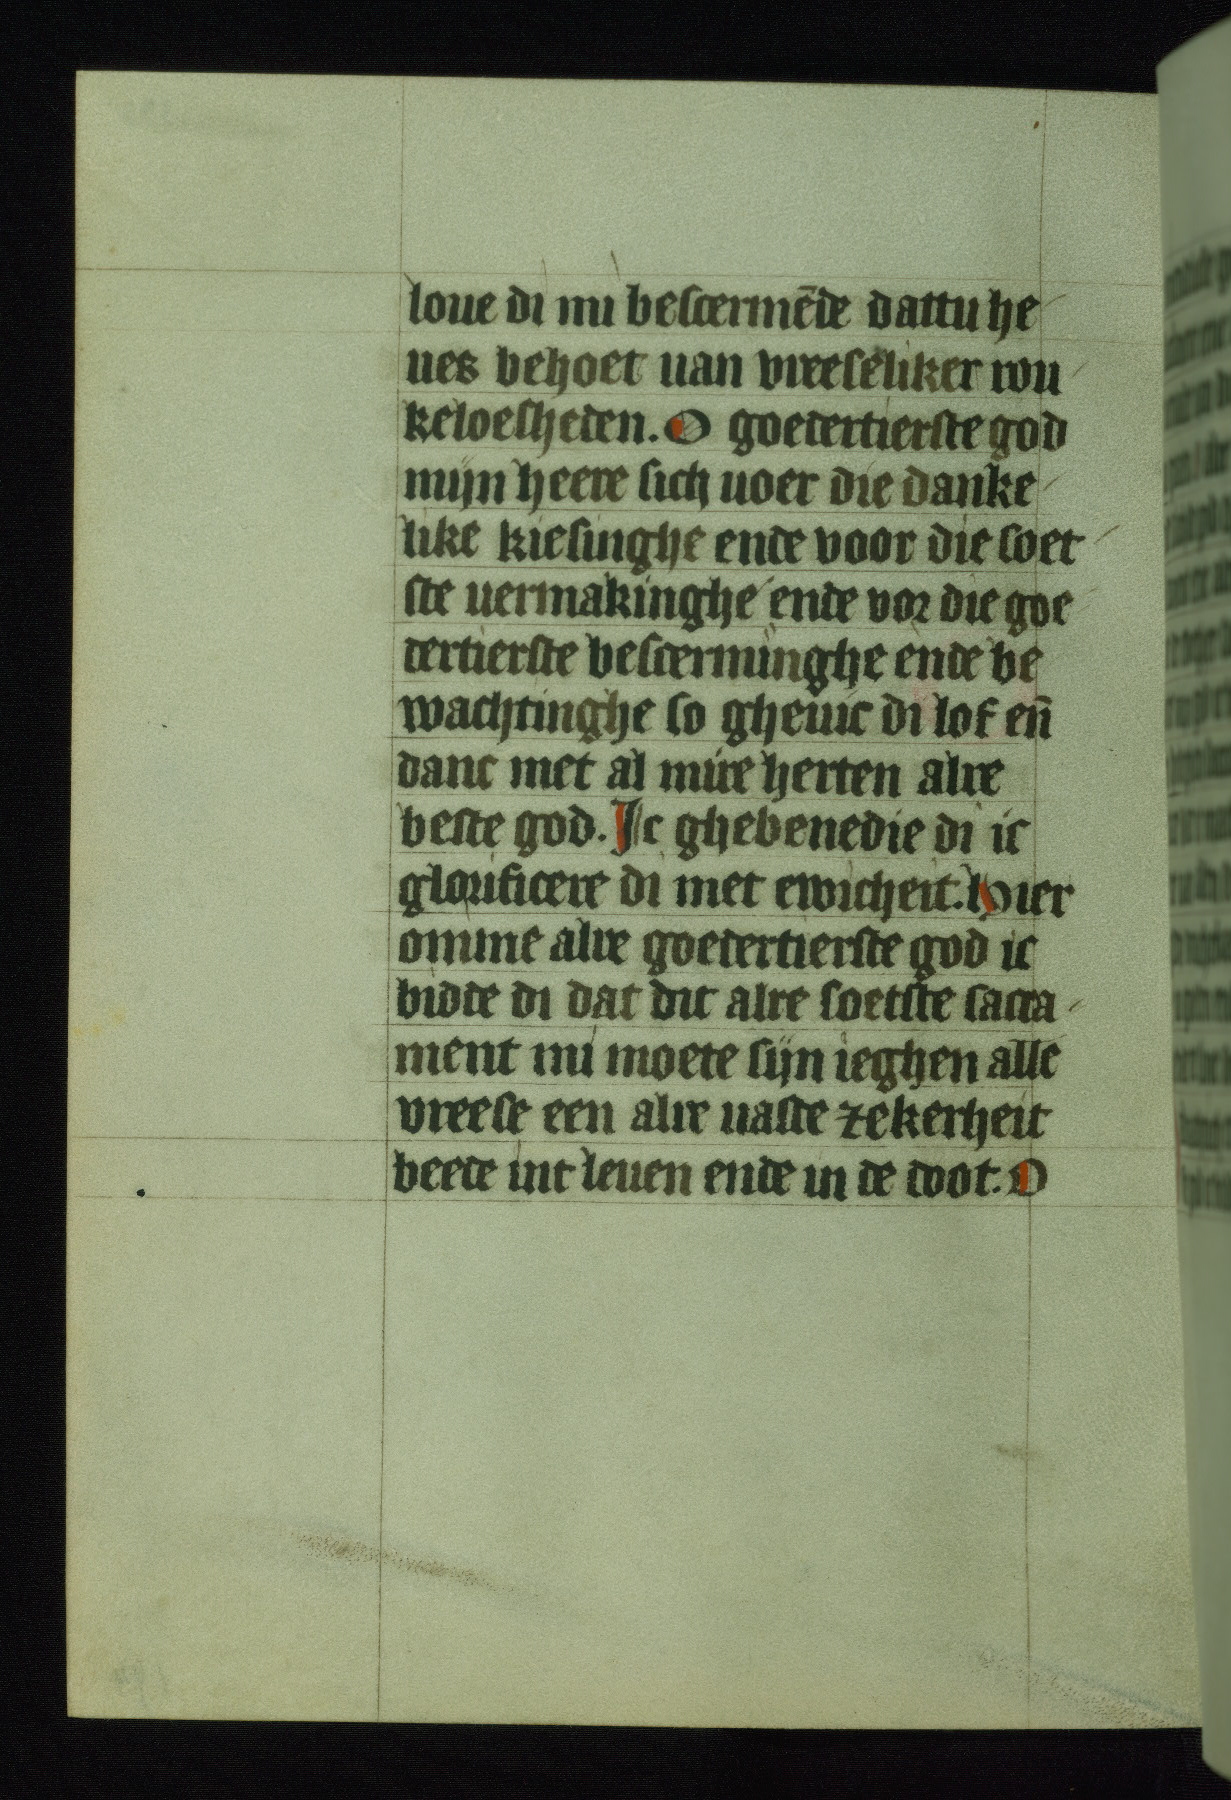 loue di mi bescermēde dattu he
ues behoet uan vreeseliker rou
keloesheden. O goedertierste god
mijn heere sich uoer die danke
like kiesinghe ende voor die soet
ste uermakinghe ende vor die goe
dertierste bescerminghe ende be
wachtinghe so gheuic di lof eñ
danc met al mire herten alre
beste god. Ic ghebenedie di ic
glorificere di met ewicheit. Hier
omme alre goedertierste god ic
bidde di dat dit alre soetste sacra
ment mi moete sijn ieghen alle
vreese een alre uaste zekerheit
beede int leuen ende in de doot. O